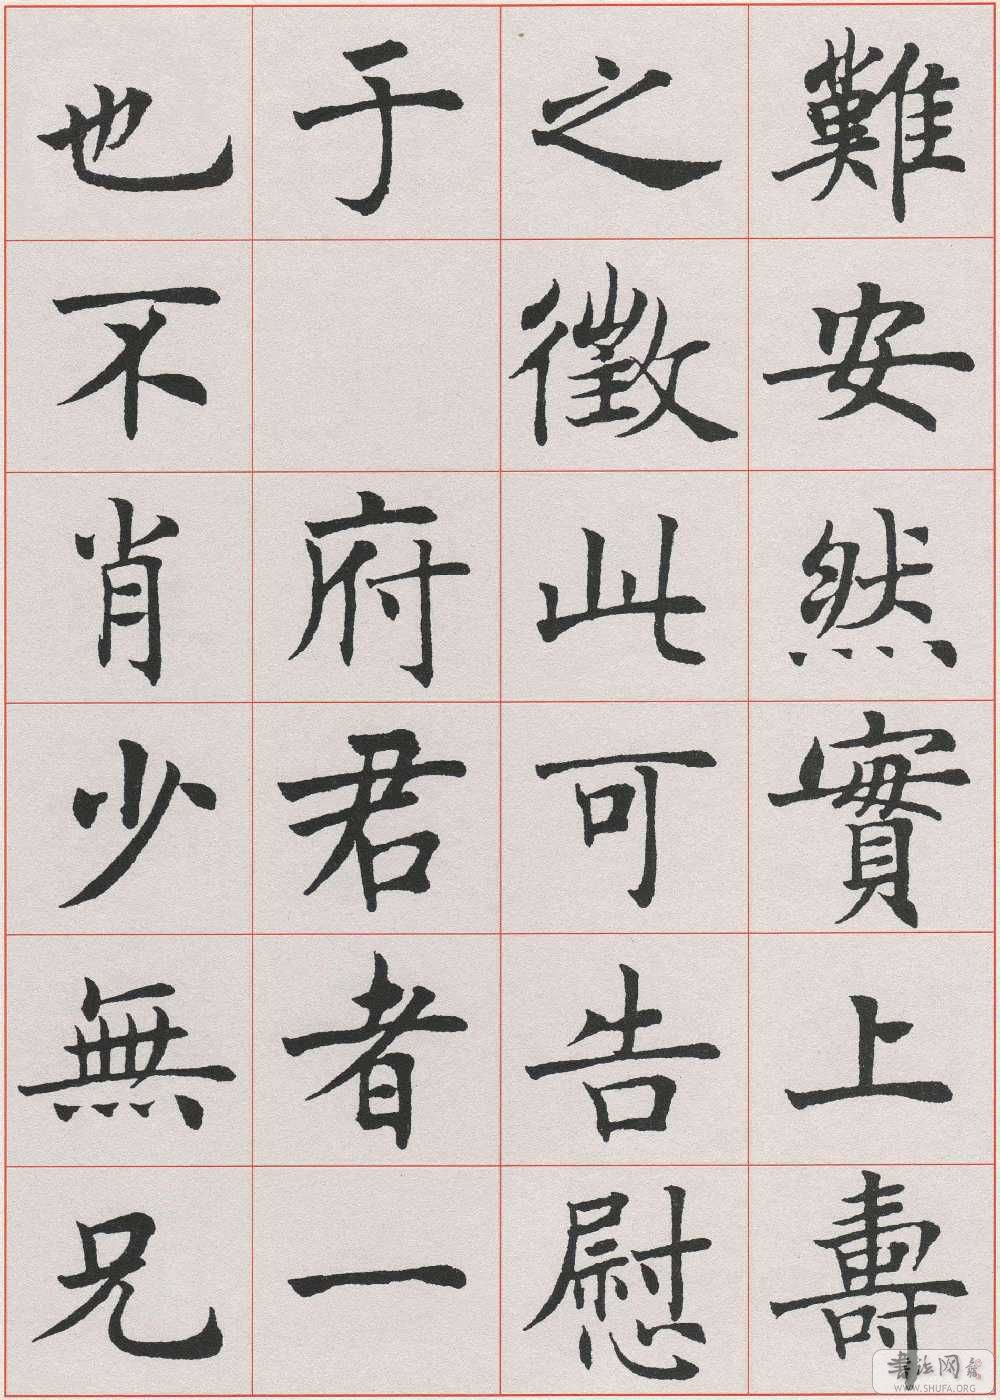 難安然實上壽
之徵此可告慰
于府君者一
也不肖少無兄
書法网
WWW.SHUFA.ORG